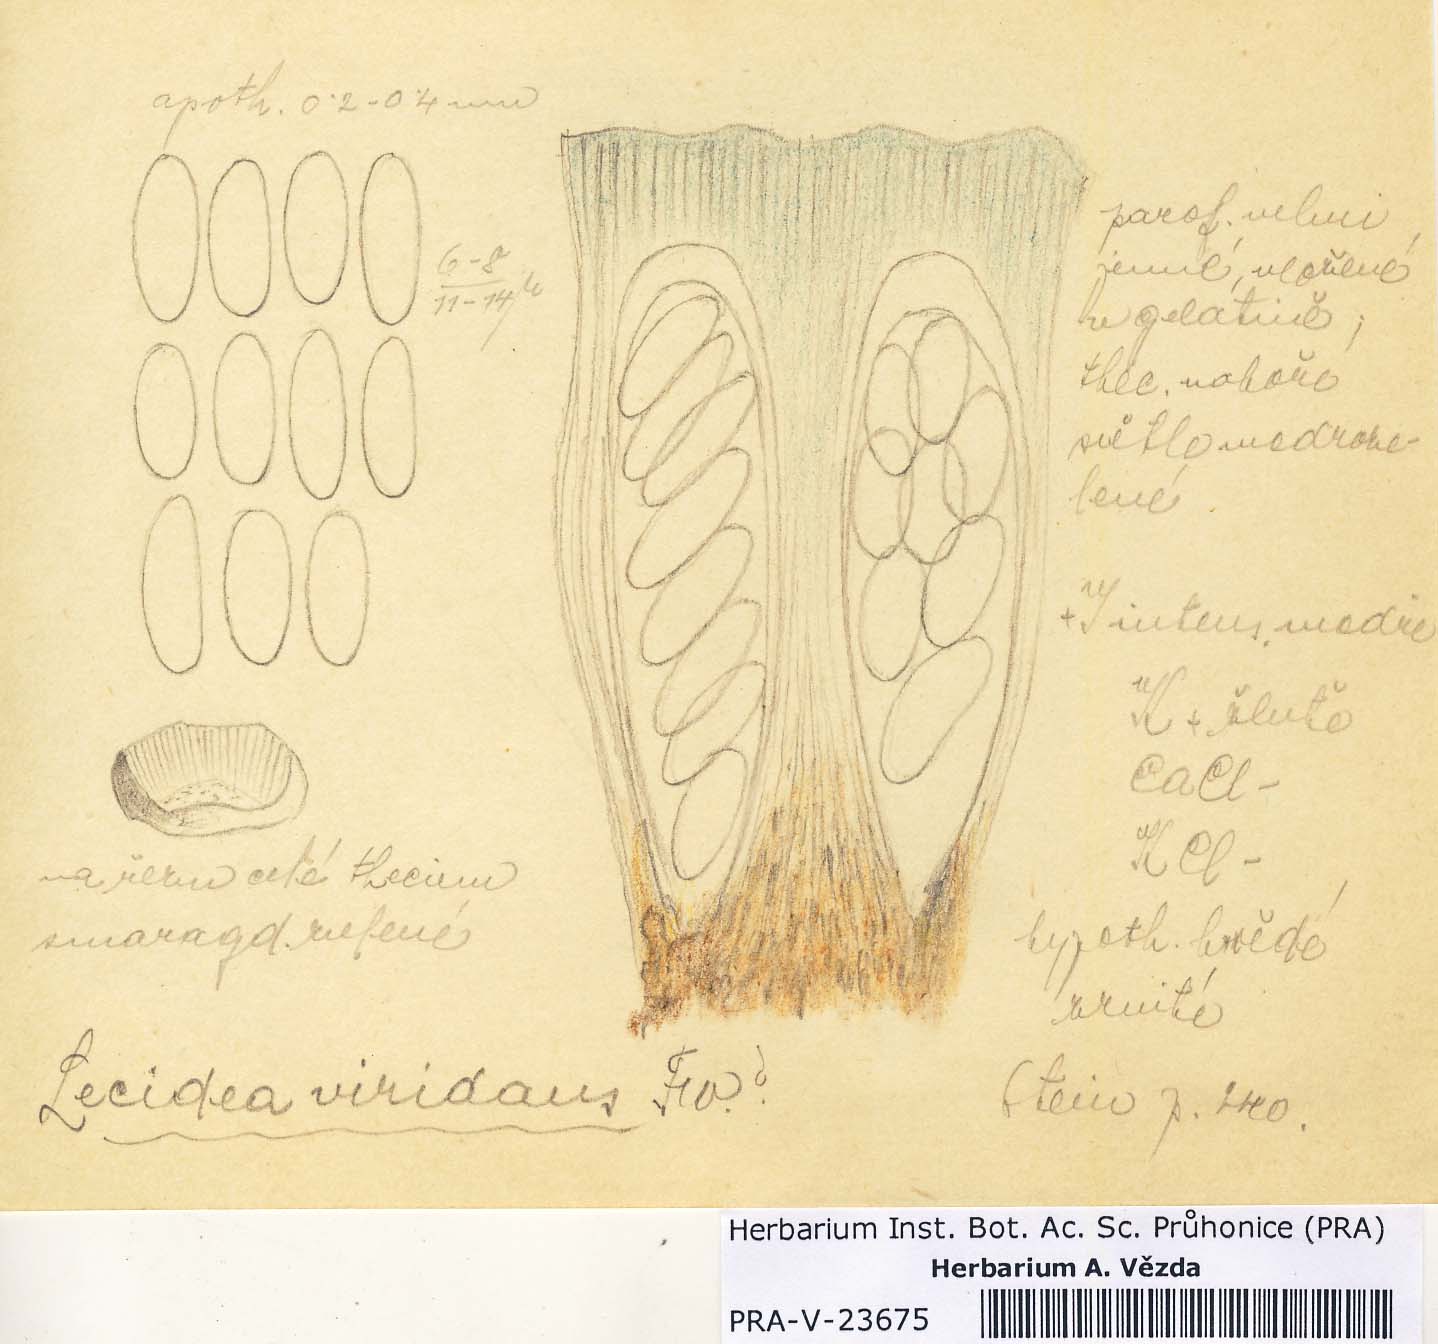 apoth. 0·2-0·4 mm
6-8
11-14 µ
paraf. velmi
jemné, vložené
v gelatině;
thec. nahoře
světlo modroze-
lené
+ J intens. modře
K + žlutě
CaCl -
KCl -
hypoth. hnědé
zrnité
na řezu celé thecium
smaragd. zelené
Lecidea viridans Fw.?
Stein p. 240.
Herbarium Inst. Bot. Ac. Sc. Průhonice (PRA)
Herbarium A. Vězda
PRA-V-23675